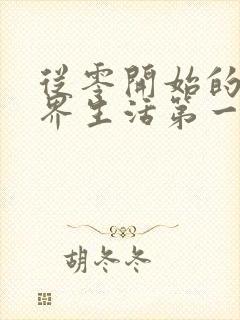 從零開始的
界生活第一
胡冬冬